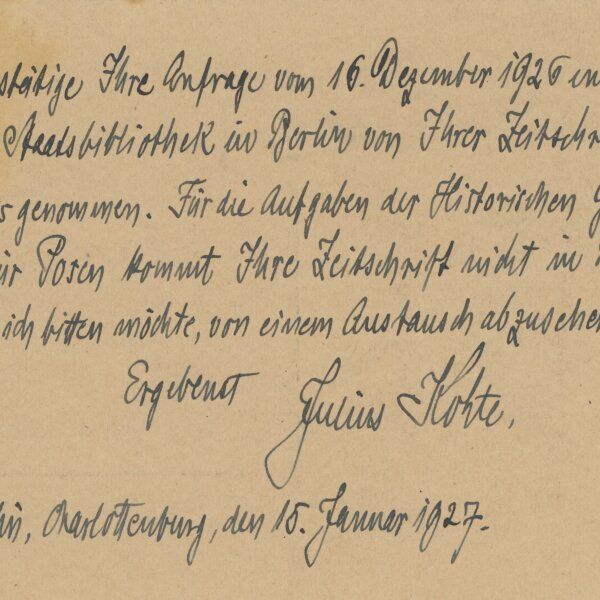 stätige Ihre Anfrage vom 16. Dezember 1926 en
Staatsbibliothek in Berlin von Ihrer Zeitschr
s genommen. Für die Aufgaben der Historischen G
ür Posen kommt Ihre Zeitschrift nicht in
ich bitten möchte, von einem Austausch abzusehen
Ergebenst Julius Kohte,
lin, Charlottenburg, den 15. Januar 1927.